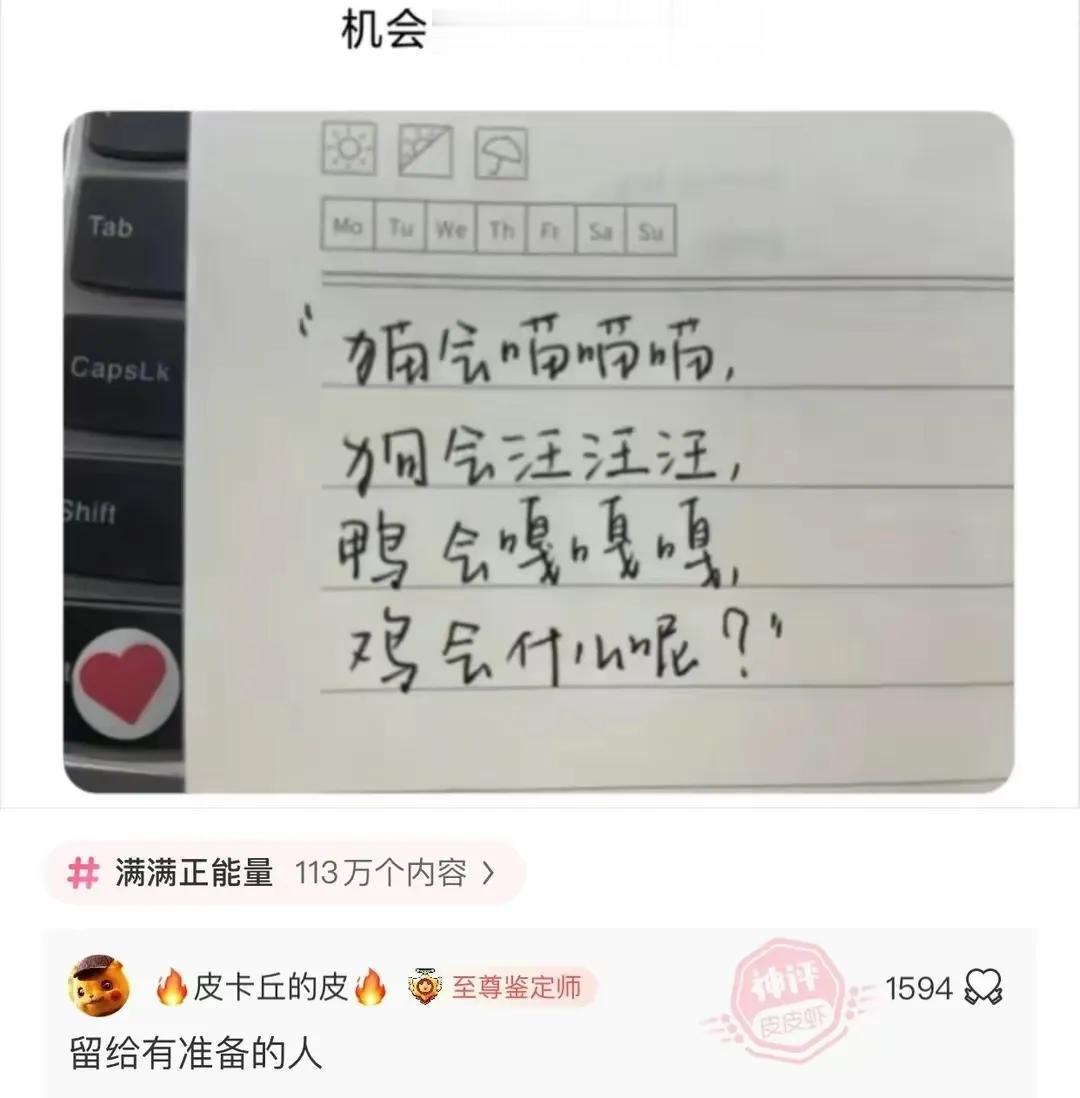 机会
Tab
CapsLk
Shift
Mo Tu We Th Fr Sa Su
“猫会喵喵喵,
狗会汪汪汪,
鸭会嘎嘎嘎,
鸡会什么呢?”
# 满满正能量 113万个内容 >
🔥皮卡丘的皮🔥 至尊鉴定师
神评
皮皮虾
1594
留给有准备的人